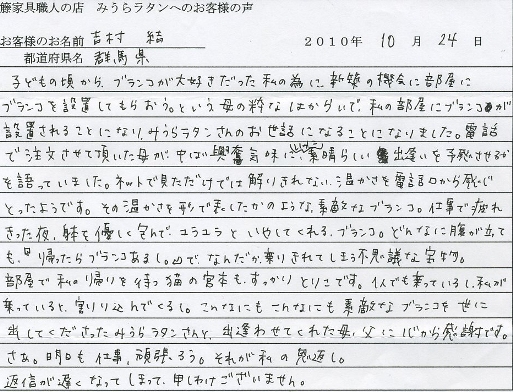 籐家具職人の店　みうらラタンへのお客様の声
お客様のお名前　吉村　結
2010年 10月 24日
都道府県名　群馬県
子どもの頃から、ブランコが大好きだった私の為に、新築の機会に部屋に
ブランコを設置してもらおう。という母の粋なはからいで、私の部屋にブランコが
設置されることになり、みうらラタンさんのお世話になることになりました。電話
で注文させて頂いた母が、中ば興奮気味に、素晴らしい出逢いを予感させるか
を語っていました。ネットで見ただけでは解りきれない、温かさを電話口から感じ
とったようです。その温かさを形で表したかのような、素敵なブランコ。仕事で疲れ
きった夜、躰を優しく包んで、ユラユラといやしてくれる、ブランコ。どんなに腹が立て
も、帰ったらブランコあるし。で、なんだか乗りきれてしまう不思議な宝物。
部屋で私の帰りを待つ猫の宮本も、すっかりとりこです。1人でも乗っているし、私が
乗っていると、割り込んでくるし。こんなにもこんなにも素敵なブランコを世に
出してくださったみうらラタンさんと、出逢わせてくれた母、父に心から感謝です。
さあ。明日も仕事、頑張ろう。それが私の恩返し。
返信が遅くなってしまって、申しわけございません。